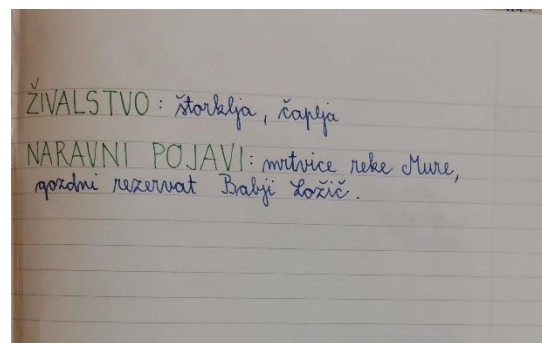 ŽIVALSTVO: štorklja, čaplja
NARAVNI POJAVI: mrtvice reke Mure,
gozdni rezervat Babji Ložič.